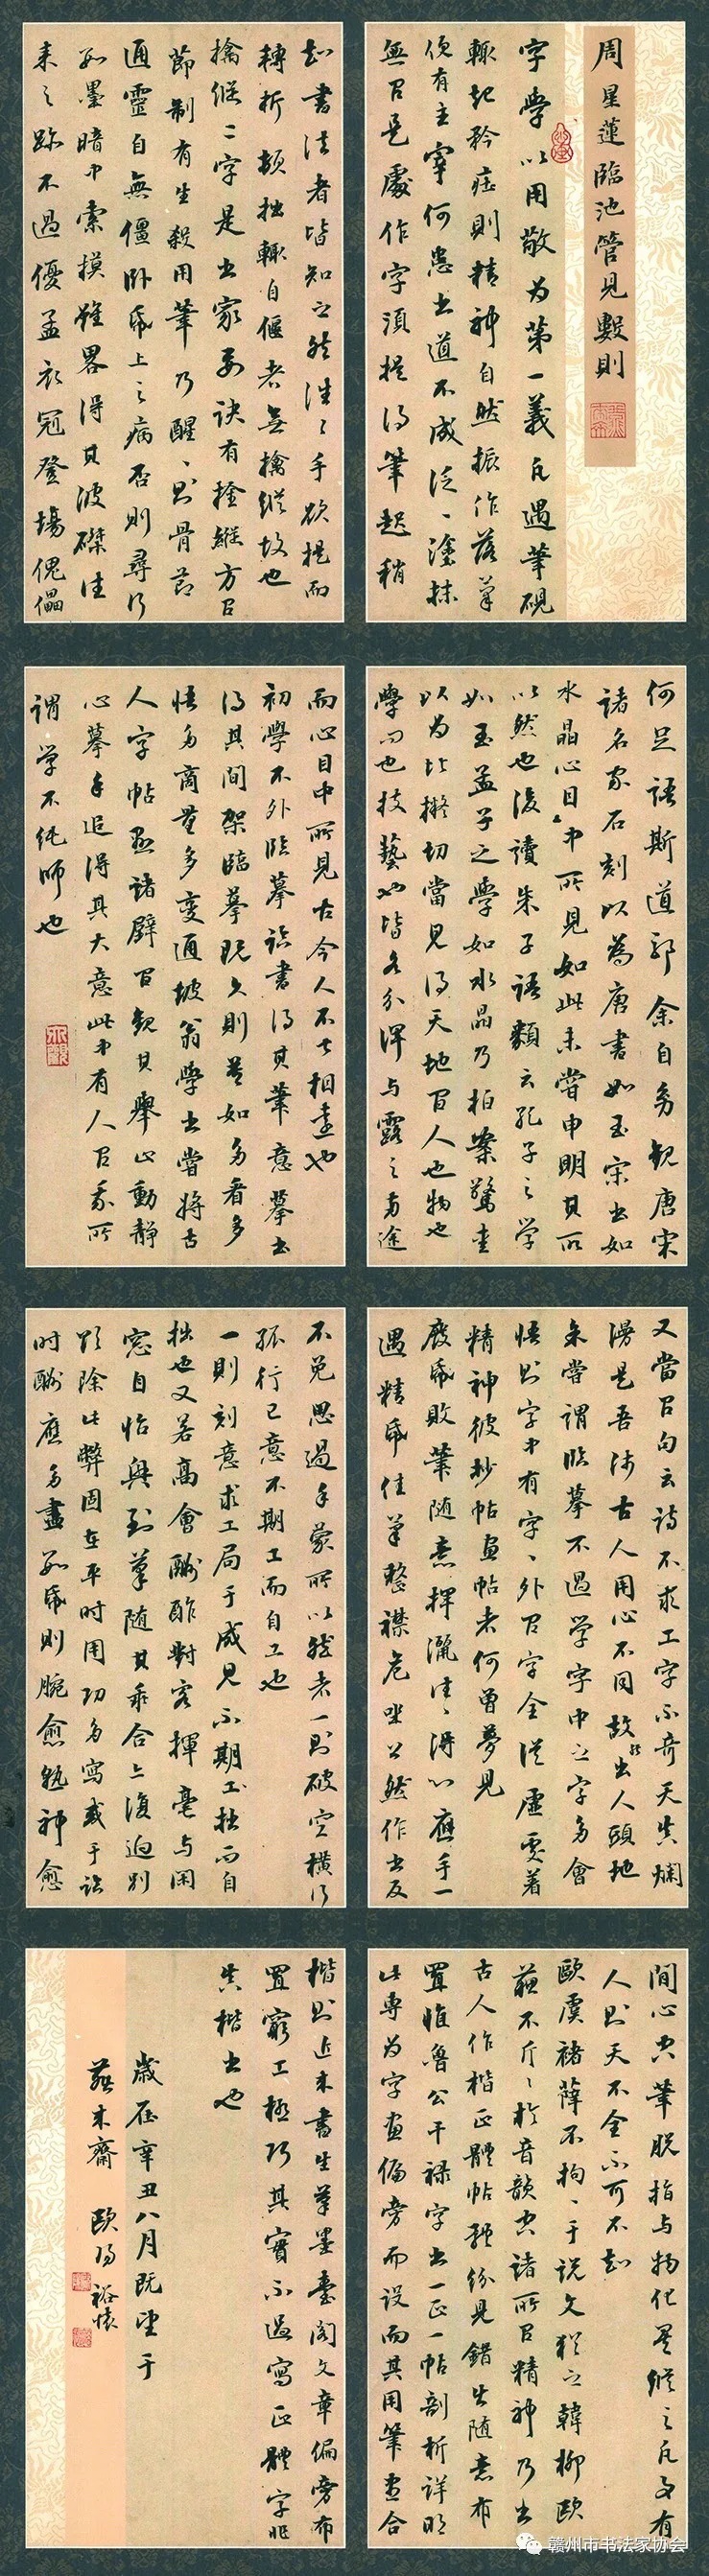 周星蓮臨池管見數則
字學以用敬为第一義凡遇筆硯
輒起矜莊則精神自然振作落筆
便有主宰何患书道不成泛泛塗抹
無有是處作字須提得筆起稍
知書法者皆知之然往往手欲提而
轉折頓拙輒自偃者無擒縱故也
擒縱二字是书家要訣有擒縱方有
節制有生殺用筆乃醒醒則骨節
通靈自無僵卧紙上之病否則尋行
如墨暗中索摸雖畧得其波磔往
来之跡不過優孟衣冠登場傀儡
何足語斯道邪余自幼觀唐宋
諸名家石刻以為唐書如玉宋书如
水晶心目中所見如此未嘗申明其所
以然也後讀朱子語類云孔子之学
如玉孟子之學如水晶乃拍案驚
以为比擬切當見得天地間人也物也
學问也技藝也皆各分渾与露之两途
而心目中所見古今人不甚相遠也
初學不外臨摹臨書得其筆意摹书
得其間架臨摹既久則莫如多看多
悟多商量多變通坡翁學书嘗将古
人字帖懸諸壁間觀其舉止動静
心摹手追得其大意此中有人有我所
謂学不純師也
又嘗有句云詩不求工字不奇天真爛
漫是吾师古人用心不同故能出人頭地
余嘗謂臨摹不過学字中之字多會
悟則字中有字字外有字全從虛處着
精神彼抄帖画帖者何曾夢見
廢紙敗筆随意揮灑往往得心應手一
遇精紙佳筆整襟危坐公然作书反
不免思過手蒙所以然者一則破空橫行
孤行己意不期工而自工也
一則刻意求工局于成見不期拙而自
拙也又若高會酬酢對客揮毫与闲
窓自怡興到筆随其乖合亦復迥别
欲除此弊固在平时用功多寫或于臨
时酬應多盡数紙則腕愈熟神愈
閒心空筆脱指与物化矣縱之凡事有
人則天不全不可不知
歐虞褚薛不拘拘于説文猶之韓柳歐
蘇不斤斤於音韻也諸所有精神乃出
古人作楷正體帖體紛見錯出随意布
置惟魯公干禄字书一正一帖剖析详明
此專为字画偏旁而設而其用筆画合
楷則近来書生筆墨臺阁文章偏旁布
置窮工極巧其實不過寫正體字非
真楷书也
歲在辛丑八月既望于
蘇木齋 歐陽裕懷
赣州市书法家协会